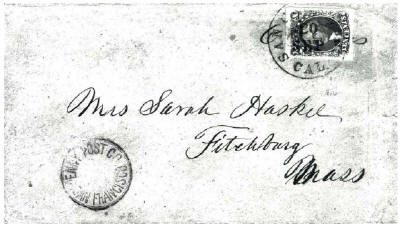 SAN
CAL.
Mrs Sarah Haskel
Fitchburg
Mass
PENNY POST CO.
SAN FRANCISCO